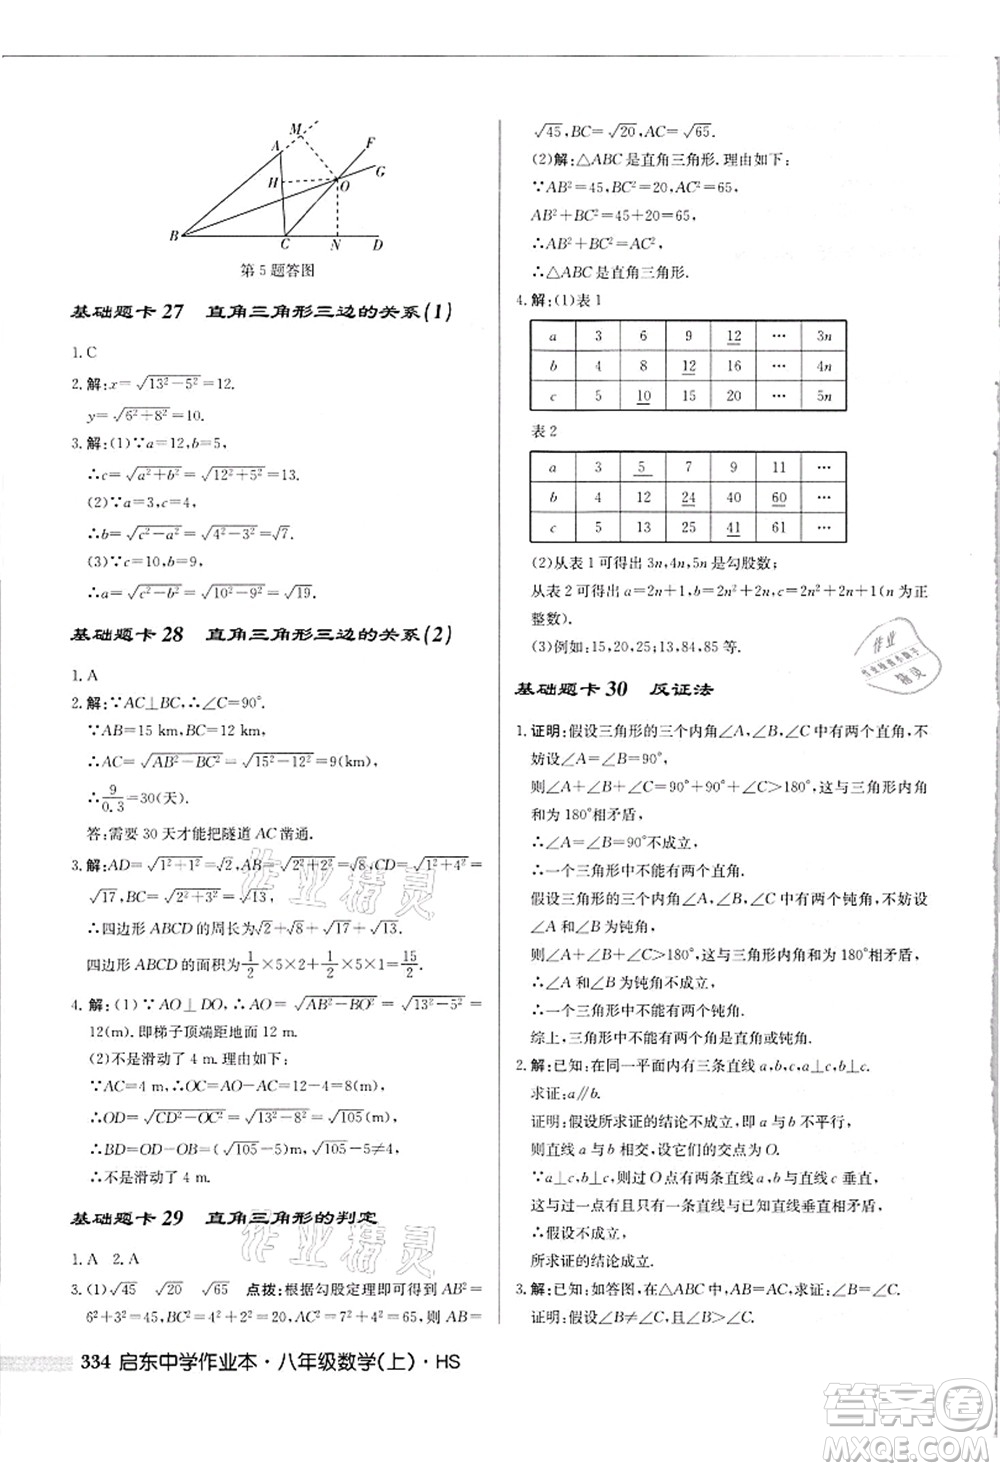 M
F
A
G
H
O
B
C
N
D
第5题答图
基础题卡 27 直角三角形三边的关系(1)
1. C
2. 解:x=√(13²-5²)=12.
y=√(6²+8²)=10.
3. 解:(1)∵a=12,b=5,
∴c=√(a²+b²)=√(12²+5²)=13.
(2)∵a=3,c=4,
∴b=√(c²-a²)=√(4²-3²)=√7.
(3)∵c=10,b=9,
∴a=√(c²-b²)=√(10²-9²)=√19.
基础题卡 28 直角三角形三边的关系(2)
1. A
2. 解:∵AC⊥BC,∴∠C=90°.
∵AB=15 km,BC=12 km,
∴AC=√(AB²-BC²)=√(15²-12²)=9(km).
∴9/0.3=30(天).
答:需要 30 天才能把隧道 AC 凿通.
3. 解:AD=√(1²+1²)=√2,AB=√(2²+2²)=√8,CD=√(1²+4²)=
√17,BC=√(2²+3²)=√13,
∴四边形 ABCD 的周长为√2+√8+√17+√13.
四边形 ABCD 的面积为1/2×5×2+1/2×5×1=15/2.
4. 解:(1)∵AO⊥DO,∴AO=√(AB²-BO²)=√(13²-5²)=
12(m).即梯子顶端距地面 12 m.
(2)不是滑动了 4 m.理由如下:
∵AC=4 m,∴OC=AO-AC=12-4=8(m).
∴OD=√(CD²-OC²)=√(13²-8²)=√105(m).
∴BD=OD-OB=√105-5(m)<4 m.
∴不是滑动了 4 m.
基础题卡 29 直角三角形的判定
1. A 2. A
3. (1)√45 √20 √65 点拨:根据勾股定理即可得到 AB²=
6²+3²=45,BC²=4²+2²=20,AC²=8²+1²=65,∴AB=
334 启东中学作业本·八年级数学(上)·HS
√45,BC=√20,AC=√65.
(2)解:△ABC是直角三角形.理由如下:
∵AB²=45,BC²=20,AC²=65,
AB²+BC²=45+20=65,
∴AB²+BC²=AC²,
∴△ABC是直角三角形.
4. 解:(1)表 1
a 3 6 9 12 ⋯ 3n
b 4 8 12 16 ⋯ 4n
c 5 10 15 20 ⋯ 5n
表 2
a 3 5 7 9 11 ⋯
b 4 12 24 40 60 ⋯
c 5 13 25 41 61 ⋯
(2)从表 1 可得出 3n,4n,5n是勾股数;
从表 2 可得出 a=2n+1,b=2n²+2n,c=2n²+2n+1(n 为正
整数).
(3)例如:15,20,25;13,84,85 等.
基础题卡 30 反证法
1. 证明:假设三角形的三个内角∠A,∠B,∠C 中有两个直角,不
妨设∠A=∠B=90°,
则∠A+∠B+∠C=90°+90°+∠C>180°,这与三角形内角
和为 180°相矛盾,
∴∠A=∠B=90°不成立,
∴一个三角形中不能有两个直角.
假设三角形的三个内角∠A,∠B,∠C 中有两个钝角,不妨设
∠A 和∠B为钝角,
则∠A+∠B+∠C>180°,这与三角形内角和为 180°矛盾,
∴∠A 和∠B 为钝角不成立,
∴一个三角形中不能有两个钝角.
综上,三角形中不能有两个角是直角或钝角.
2. 解:已知:在同一平面内有三条直线 a,b,c,a⊥c,b⊥c.
求证:a∥b.
证明:假设所求证的结论不成立,即 a 与 b 不平行,
则直线 a 与 b 相交,设它们的交点为 O.
∵a⊥c,b⊥c,则过 O 点有两条直线 a,b 与直线 c 垂直,
这与过直线外一点有且只有一条直线与已知直线垂直矛盾,
∴假设不成立,
所求证的结论成立.
3. 解:已知:如答图,在△ABC中,AB=AC.求证:∠B=∠C.
证明:假设∠B≠∠C,则∠B>∠C 或∠B<∠C.
作业精灵
作业精灵
作业
精灵
答案圈
MXQE.COM